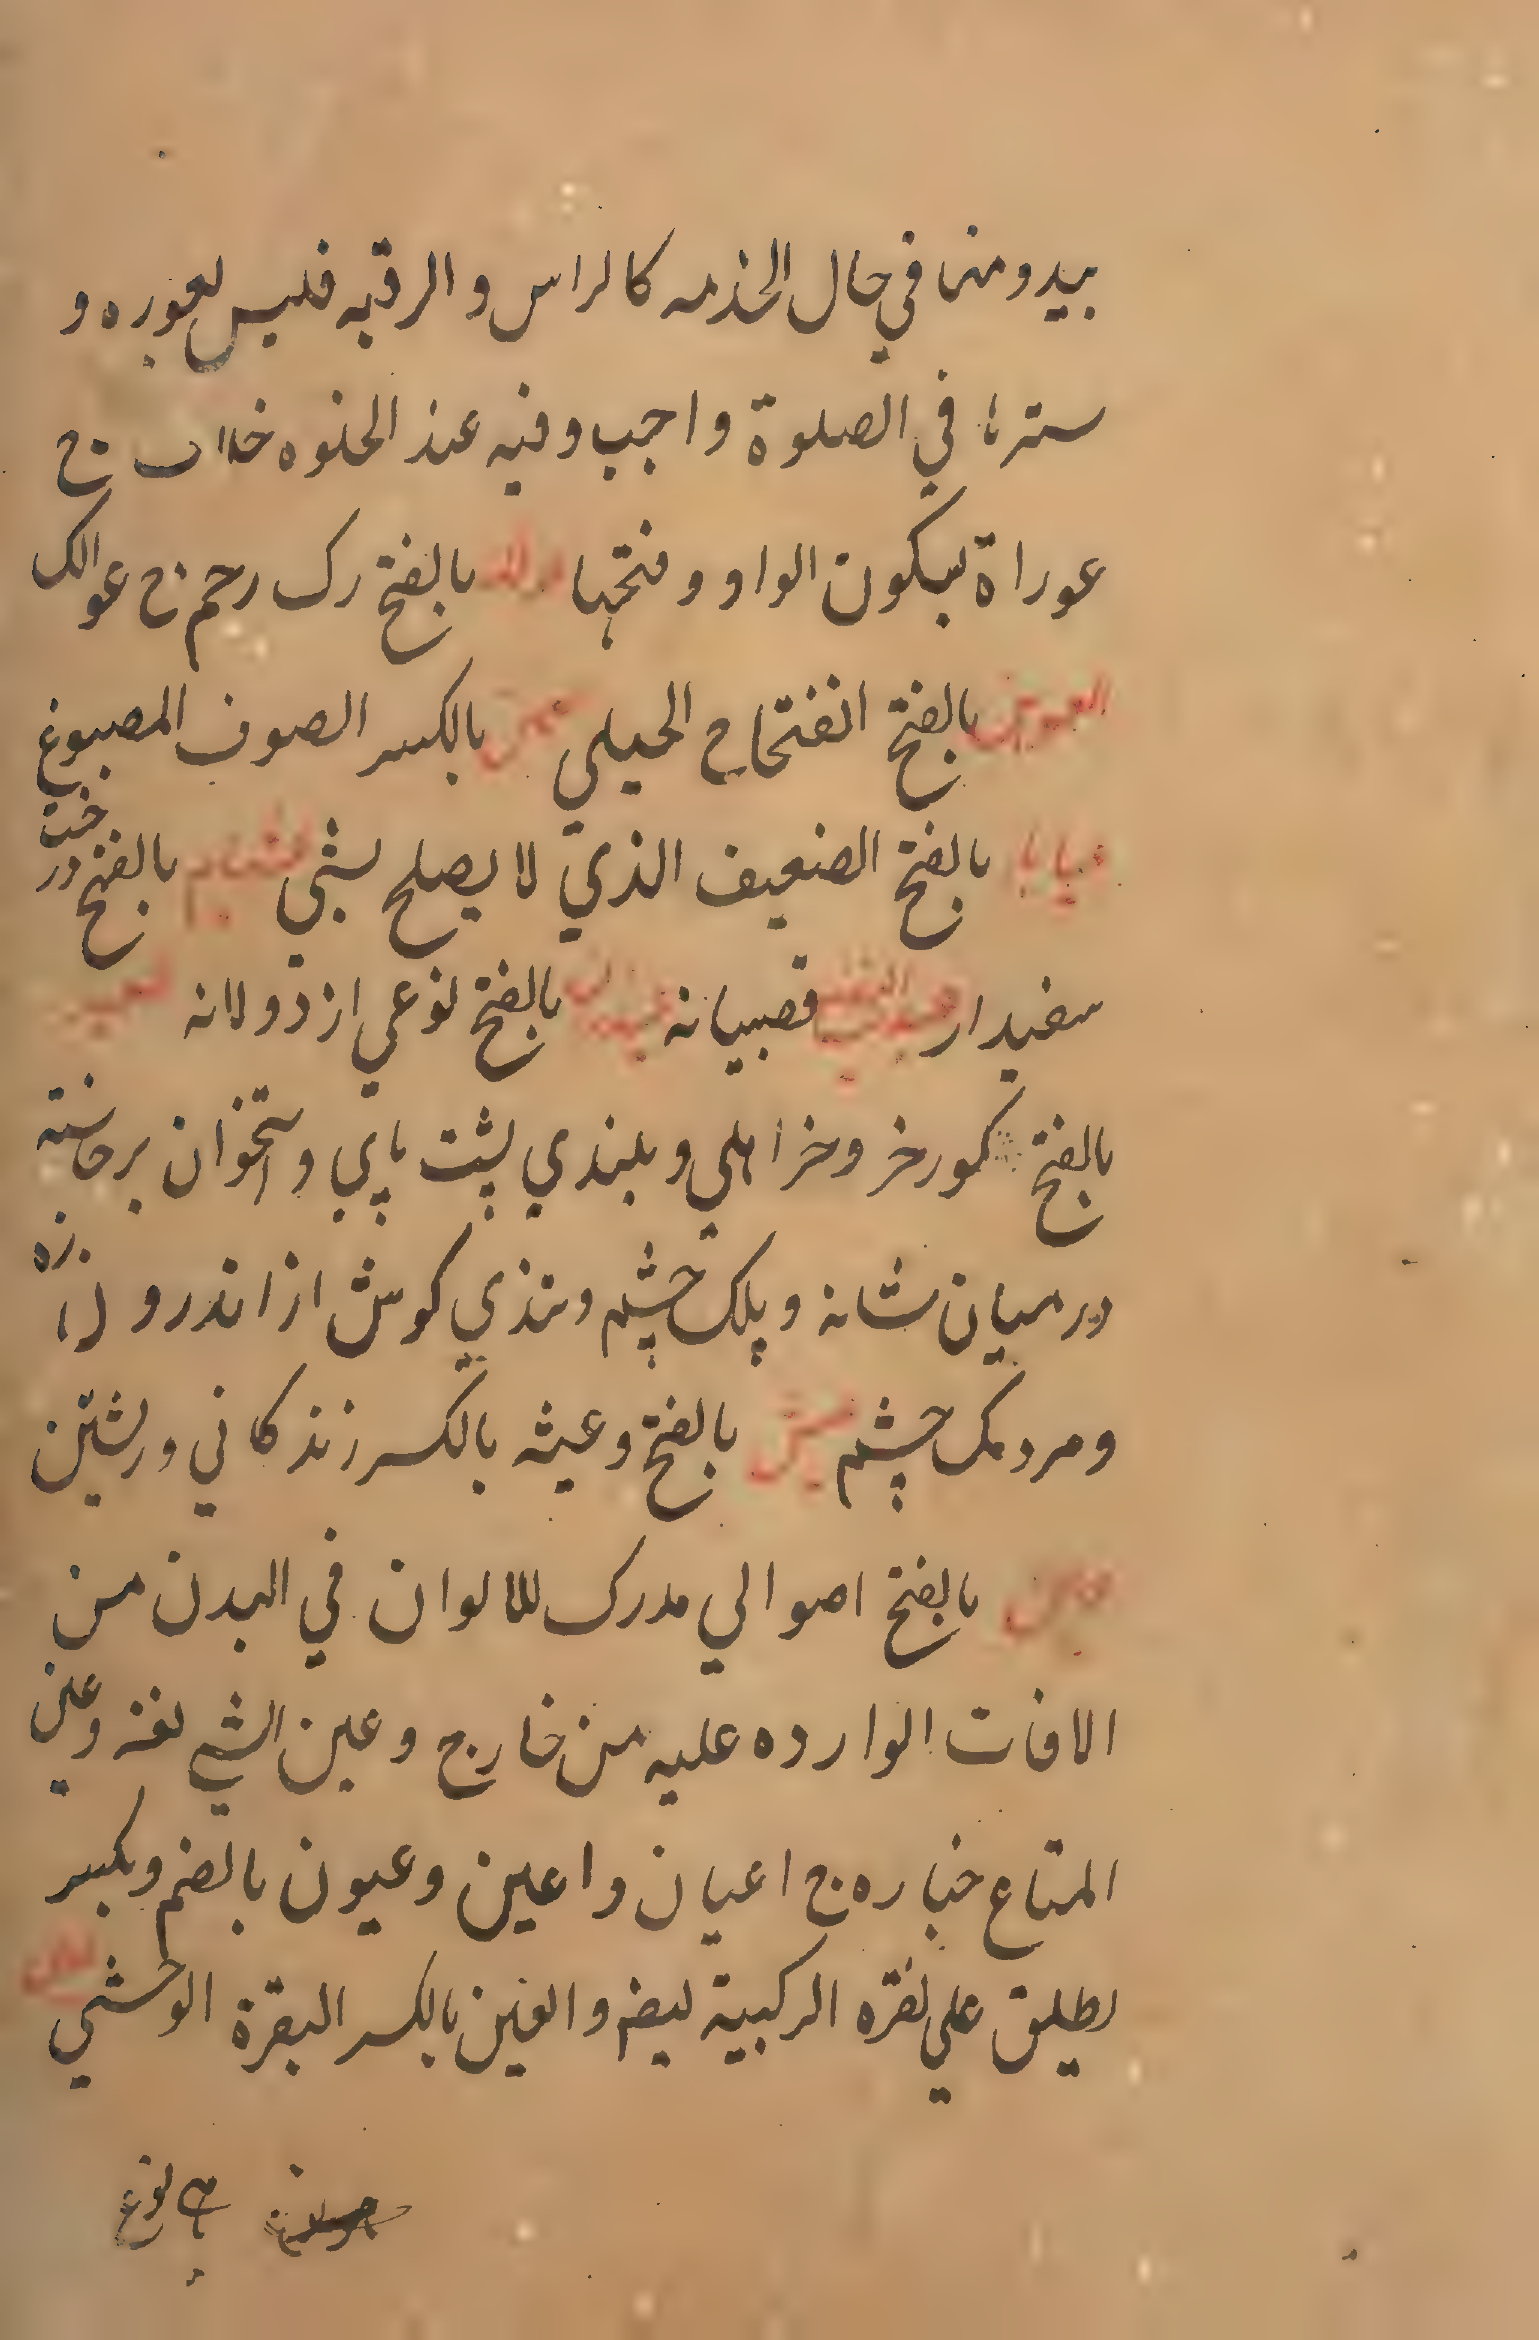 يبدو منها في حال الخدمه كالراس والرقبه فليس بعوره و
سترها في الصلوة واجب وفيه عند الخلوه خلاف ج
عوراة بسكون الواو وفتحها بالفتح رك رحم ج عوالك
بالفتح انفتاح الحبلي بالكسر الصوف المصبوغ
عيايا بالفتح الضعيف الذي لا يصلح بشي بالفتح درخت
سفيدار قصبيانه بالفتح نوعي از ذولانه عير
بالفتح كورخر وخر اهلي وبلندي پشت پاي واستخوان برخاسته
در ميان شانه وپلك چشم وتندي كوش از اندرون
ومردمك چشم عيش بالفتح وعيشه بالكسر زندكاني وزيستن
عين بالفتح مدرك للالوان في البدن من
الافات الوارده عليه من خارج وعين الشي نفسه وعين
المتاع خياره ج اعيان واعين وعيون بالضم وبكسر
يطلق علي نقره الركبية ايضا والعين بالكسر البقرة الوحشي
نوع